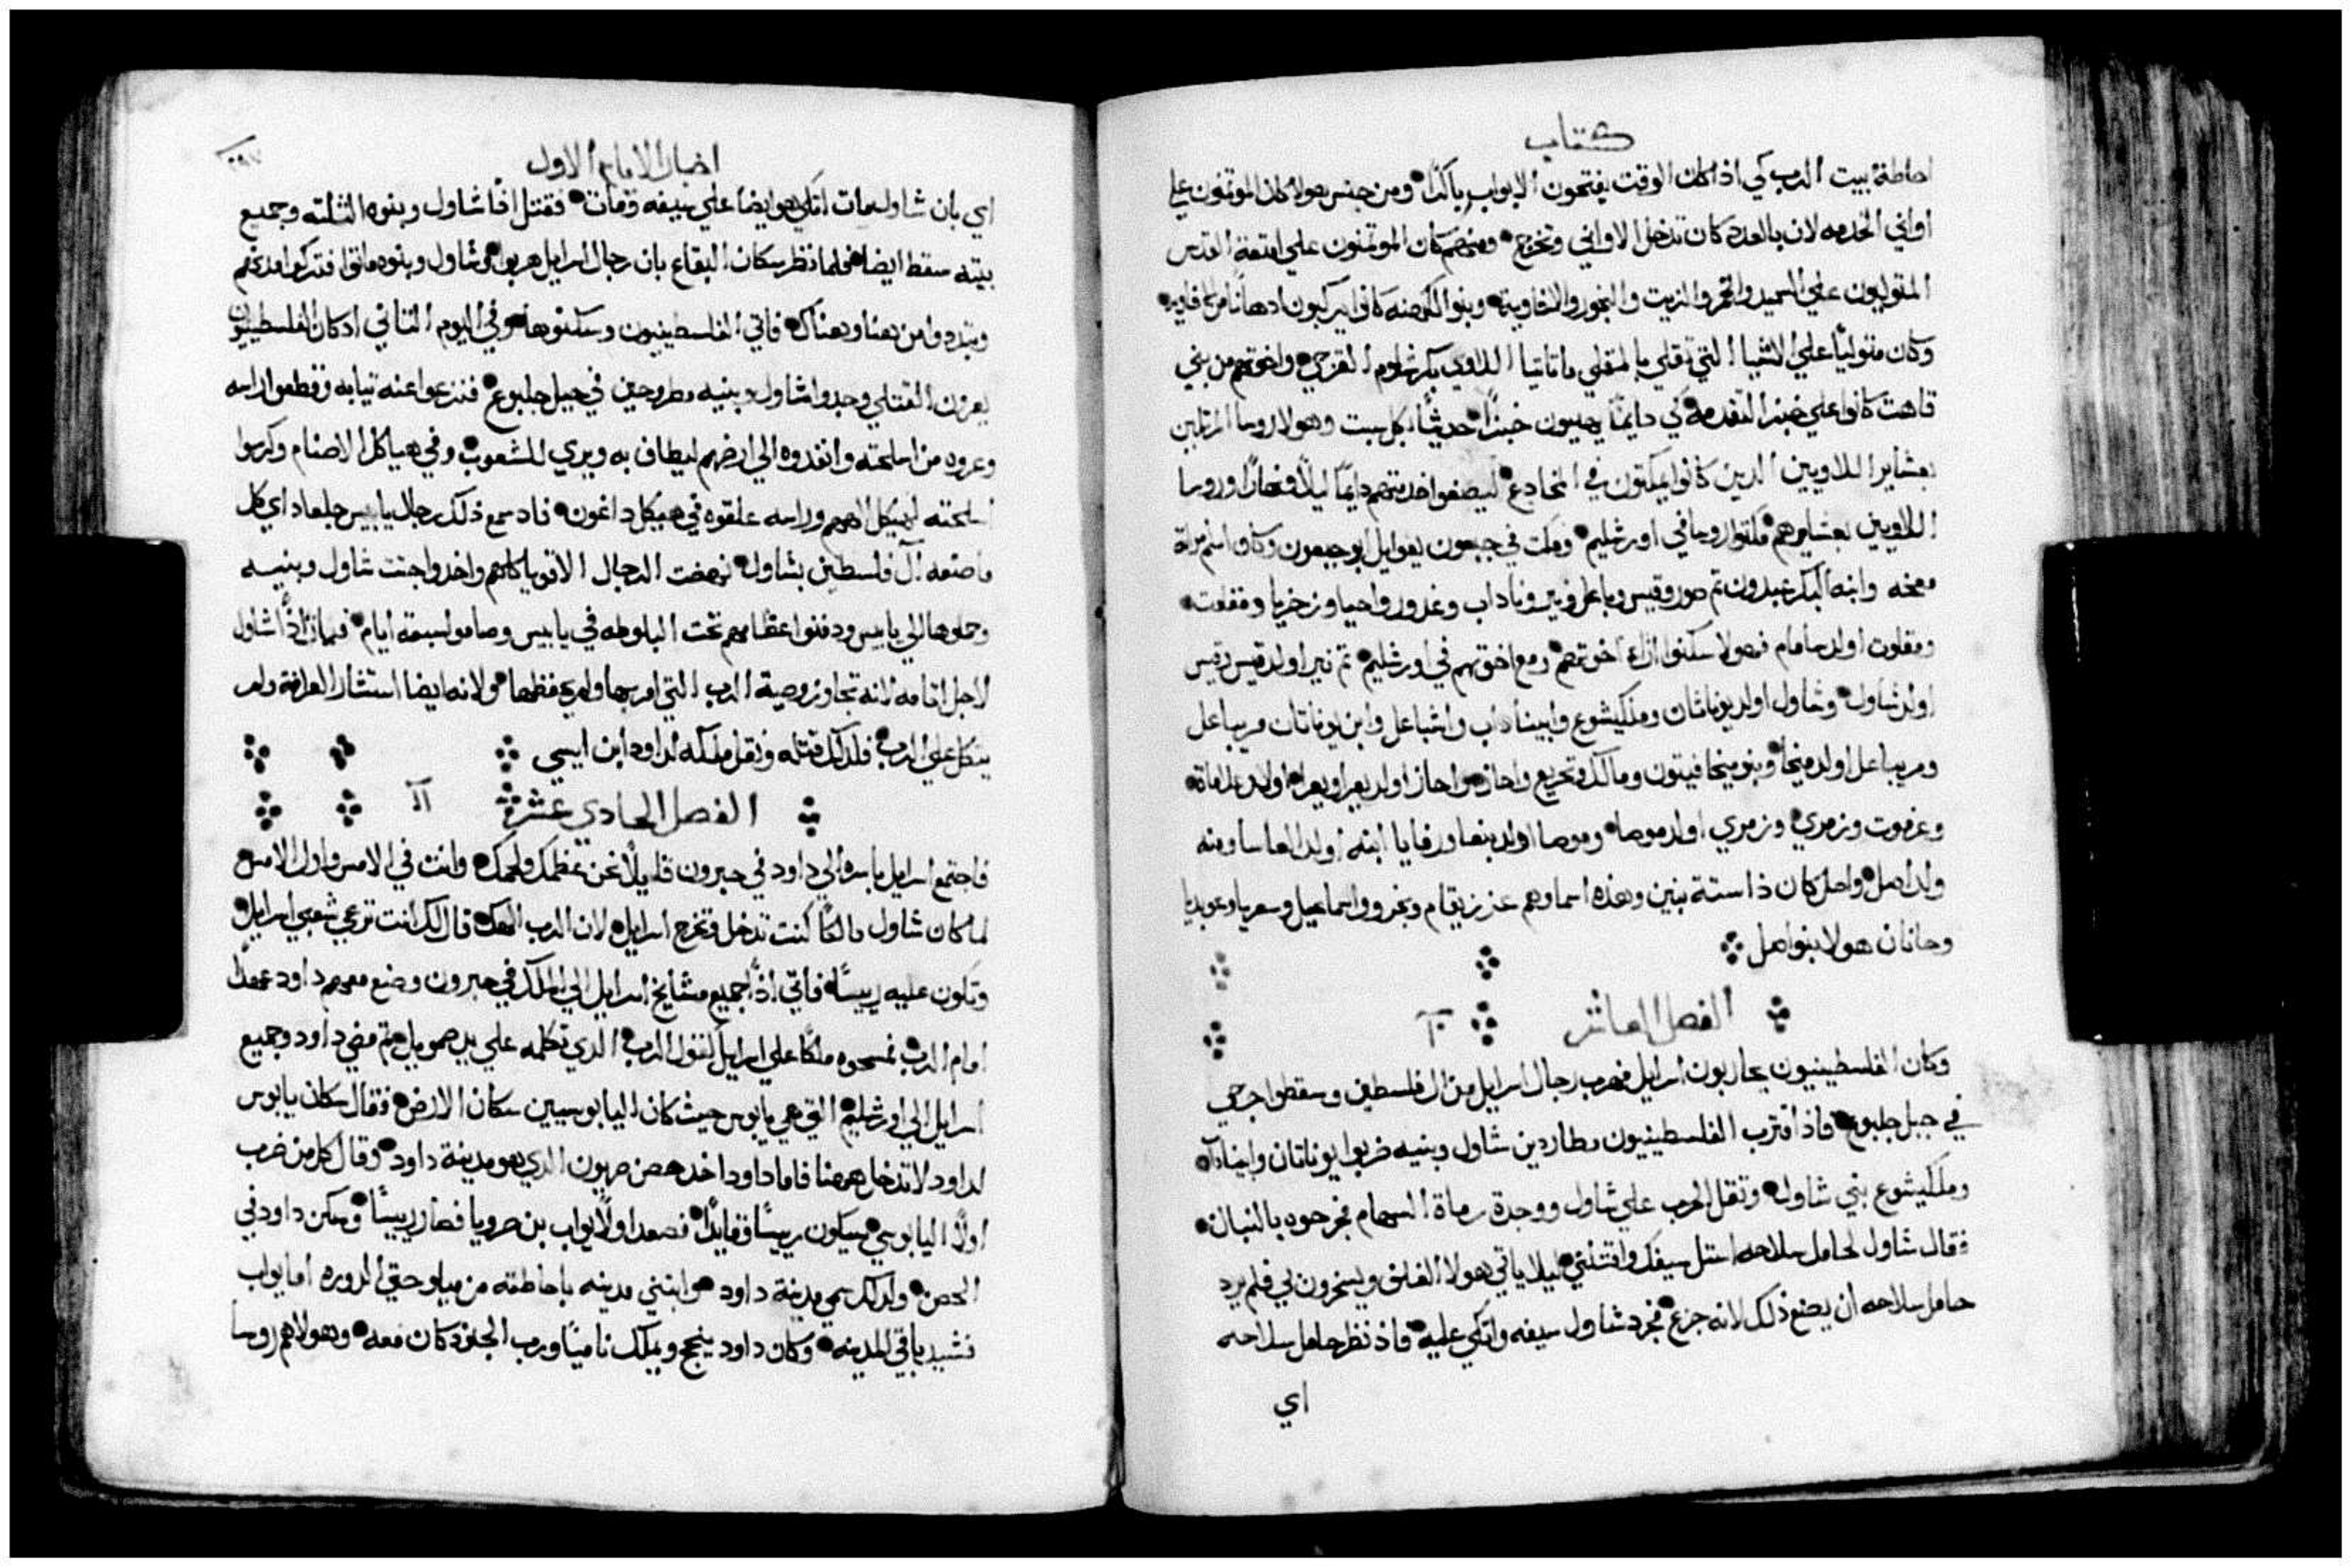 كتاب
احاطة بيت الرب كي اذا كان الوقت يفتحون الابواب باكرًا ومن جنس هولا كان الموتمنون علي
اواني الخدمه لان بالعدد كان تدخل الاواني وتخرج ومنهم كان الموتمنون علي امتعة القدس
المتوليون علي السميد والخمر والزيت والبخور والافاويه وبنو الكهنه كانوا يركبون ادهانًا من الافاويه
وكان متوليًا علي الاشيا التي تقلي بالمقلي ماتاتيا اللاوي بكر شلوم القرحي واخوتهم من بني
قاهت كانوا علي خبز التقدمه كي دايمًا يهييون خبزًا حديثًا كل سبت وهولا روسا المرتلين
بعشاير اللاويين الدين كانوا يمكتون في المخادع ليصنعوا خدمتهم دايمًا ليلًا ونهارًا وروسا
اللاويين بعشايرهم مكتوا روسا في اورشليم ومكت في جبعون يعوايل ابو جبعون وكان اسم مراة
معخه وابنه البكر عبدون تم صور وقيس وباعل ونير وناداب وغدور واحيا وزخريا ومقلوت
ومقلوت اولد سامام فهولا سكنوا ازاء اخوتهم في اورشليم مع اخوتهم تم نير اولد قيس وقيس
اولد شاول وشاول اولد يوناثان وملكيشوع وابيناداب واشباعل وابن يوناتان مريباعل
ومريباعل اولد ميخا وبنو ميخا فيتون ومالك وتحريع واحاز واحاز اولد يعرا ويعرا اولد علاماة
وعزموت وزمري وزمري اولد موصا وموصا اولد بنعا ورفايا ابنه اولد العاسا ومنه
ولد اصل واصل كان ذا ستة بنين وهذه اسماوهم عزريقام وبخرو واسماعيل وسعريا وعوبديا
وحانان هولا بنو اصل
الفصل العاشر ١٠
وكان الفلسطينيون يحاربون اسرايل فهرب رجال اسرايل من ال فلسطين وسقطوا جرحي
في جبل جلبوع فاذ اقترب الفلسطينيون مطاردين شاول وبنيه ضربوا يوناتان وابيناداب
وملكيشوع بني شاول وتقل الحرب علي شاول ووجدة رماة السهام فجرحوه بالنبال
فقال شاول لحامل سلاحه استل سيفك واقتلني ليلا ياتي هولا الغلف ويسخرون بي فلم يرد
حامل سلاحه ان يصنع ذلك لانه جزع فجرد شاول سيفه واتكي عليه فاذ نظر حامل سلاحه
اي
اخبار الايام الاول
اي بان شاول مات اتكي هو ايضًا علي سيفه ومات فقتل اذًا شاول وبنوه الثلثه وجميع
بيته سقط ايضا فلما نظر سكان البقاع بان رجال اسرايل هربوا وشاول وبنوه ماتوا فتركوا مدنهم
وتبددوا من هنا وهناك فاتي الفلسطينيون وسكنوها وفي اليوم التاني اد كان الفلسطينيون
يعرون القتلي وجدوا شاول وبنيه مطروحين في جبل جلبوع فنزعوا عنه تيابه وقطعوا راسه
وعروه من اسلحته وانفدوه الي ارضهم ليطاف به ويري للشعوب وفي هياكل الاصنام وكرسوا
اسلحته لهيكل الاههم وراسه علقوه في هيكل داغون فاد سمع ذلك رجال يابيس جلعاد اي كل
ما صنعه آل فلسطين بشاول نهضت الرجال الاقويا كلهم واخدوا جتت شاول وبنيه
وحملوها الي يابيس ودفنوا عظامهم تحت البلوطه في يابيس وصاموا سبعة ايام فمات اذًا شاول
لاجل اتامه لانه تجاوز وصية الرب التي امر بها ولم يحفظها ولانه ايضا استشار العرافة ولم
يتكل علي الرب فلدلك قتله ونقل ملكه لداود ابن ايسي
الفصل الحادي عشر ١١
فاجتمع اسرايل باسره الي داود في حبرون قايلًا نحن عظمك ولحمك وانت في الامس واول الامس
لما كان شاول مالكًا كنت تدخل وتخرج اسرايل لان الرب الهك قال لك انت ترعي شعبي اسرايل
وتكون عليه رييسًا فاتي اذًا جميع مشايخ اسرايل الي الملك في حبرون وصنع معهم داود عهدًا
امام الرب فمسحوه ملكًا علي اسرايل كقول الرب الدي تكلمه علي يد صمويل تم مضي داود وجميع
اسرايل الي اورشليم التي هي يابوس حيث كان اليابوسيين سكان الارض فقال سكان يابوس
لداود لا تدخل ههنا فاما داود اخد حصن صهيون الدي هو مدينة داود وقال كل من ضرب
اولًا اليابوسي سيكون رييسًا وقايدًا فصعد اولًا يواب بن صرويا فصار رييسًا وسكن داود في
الحصن ولدلك سمي مدينة داود وابتني مدينه باحاطته من ميلو حتي الدوره اما يواب
فشيد باقي المدينه وكان داود ينجح ويملك ناميًا ورب الجنود كان معه وهولا هم روسا